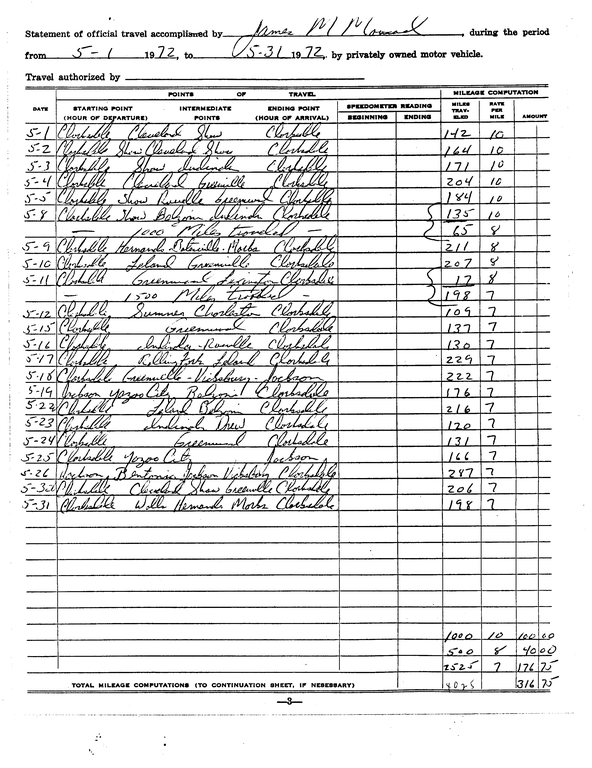 Statement of official travel accomplished by James M , during the period
from 5-1 1972, to 5-31 1972, by privately owned motor vehicle.
Travel authorized by
POINTS OF TRAVEL MILEAGE COMPUTATION
DATE STARTING POINT (HOUR OF DEPARTURE) INTERMEDIATE POINTS ENDING POINT (HOUR OF ARRIVAL) SPEEDOMETER READING BEGINNING ENDING MILES TRAVELED RATE PER MILE AMOUNT
5-1 Clarksdale Cleveland Shaw Clarksdale 142 10
5-2 Clarksdale Shaw Cleveland Shaw Clarksdale 164 10
5-3 Clarksdale Shaw Indianola Clarksdale 171 10
5-4 Clarksdale Cleveland Greenville Clarksdale 204 10
5-5 Clarksdale Shaw Ruleville Greenwood Clarksdale 184 10
5-8 Clarksdale Shaw Belzoni Indianola Clarksdale 135 10
— 1000 Miles traveled — 65 8
5-9 Clarksdale Hernando Batesville-Marks Clarksdale 211 8
5-10 Clarksdale Leland Greenville Clarksdale 207 8
5-11 Clarksdale Greenwood Lexington Clarksdale 17 8
— 1500 Miles traveled — 198 7
5-12 Clarksdale Sumner Charleston Clarksdale 109 7
5-15 Clarksdale Greenwood Clarksdale 137 7
5-16 Clarksdale Indianola-Ruleville Clarksdale 130 7
5-17 Clarksdale Rolling Fork Leland Clarksdale 229 7
5-18 Clarksdale Greenville-Vicksburg-Jackson 222 7
5-19 Jackson Yazoo City Belzoni Clarksdale 176 7
5-22 Clarksdale Leland Belzoni Clarksdale 216 7
5-23 Clarksdale Indianola Drew Clarksdale 120 7
5-24 Clarksdale Greenwood Clarksdale 131 7
5-25 Clarksdale Yazoo City, Jackson 166 7
5-26 Jackson, Bentonia Jackson Vicksburg Clarksdale 287 7
5-30 Clarksdale Cleveland Shaw Greenville Clarksdale 206 7
5-31 Clarksdale Walls Hernando Marks Clarksdale 198 7
1000 10 100 00
500 8 40 00
2525 7 176 75
TOTAL MILEAGE COMPUTATIONS (TO CONTINUATION SHEET, IF NESESSARY) 4025 316 75
—3—